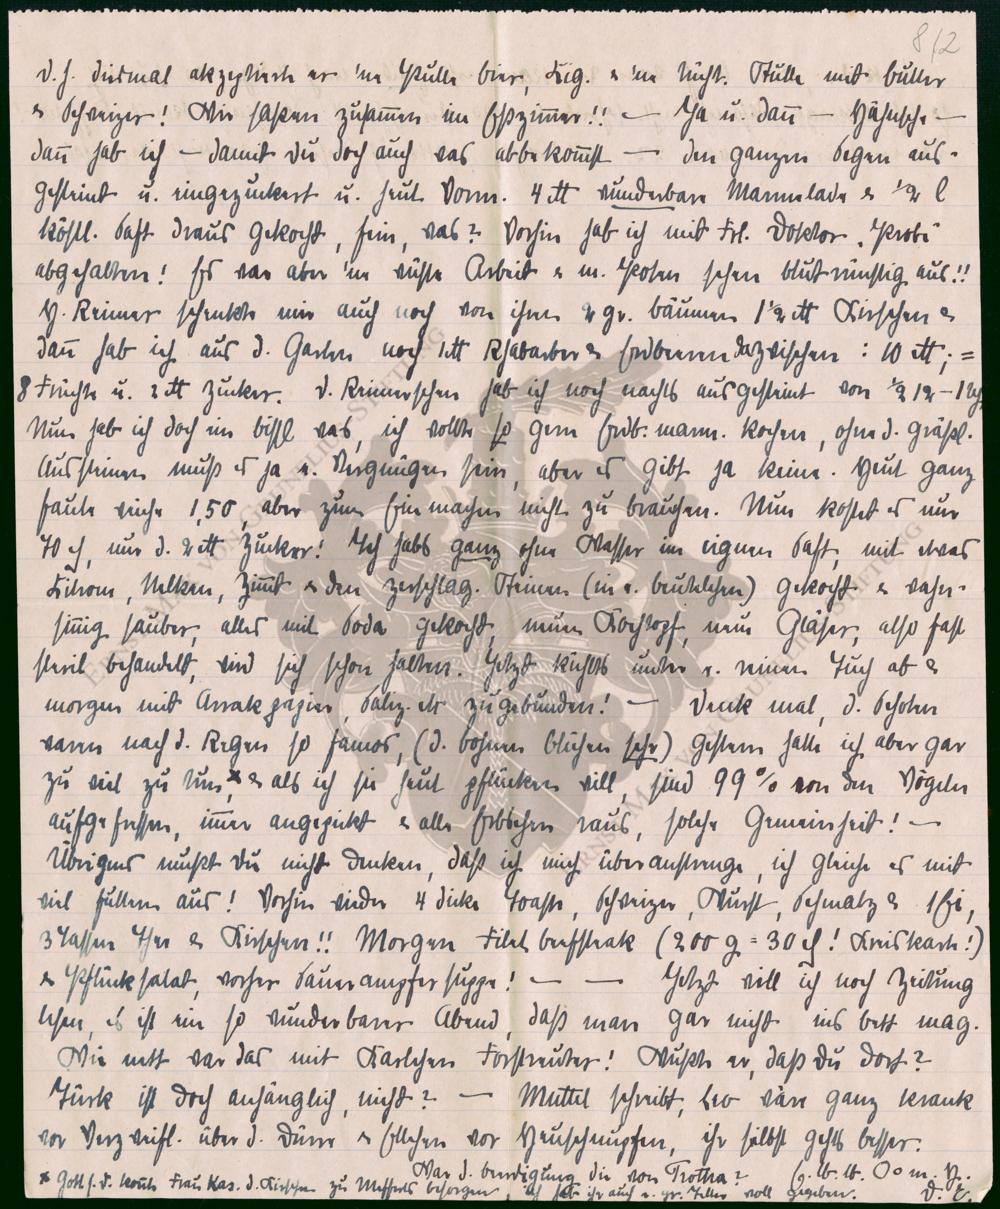 8/2
d. h. diesmal akzeptierte er 'ne Pulle Bier, Zig. & 'ne Nicht. Stulle mit Butter
& Schweizer! Wir saßen zusammen im Eßzimmer!! — Ja u. dann — Hähnsche —
dann hab ich — damit Du doch auch was abbekommst — den ganzen Segen aus-
gesteint u. eingezuckert u. heut Vorm. 4 ℔ wunderbare Marmelade & ½ l
köstl. Saft draus gekocht, fein, was? Vorhin hab ich mit Frl. Doktor „Probe"
abgehalten! Es war aber 'ne wüste Arbeit & m. Pfoten sehen blutrünstig aus!!
H. Reimer schenkte mir auch noch von ihren 2 gr. Bäumen 1½ ℔ Kirschen &
dann hab ich aus d. Garten noch 1 ℔ Rhabarber & Erdbeeren dazwischen : 10 ℔; =
8 Früchte u. 2 ℔ Zucker. D. Reimerschen hab ich noch nachts ausgesteint von ½ 12 – 1 Uhr.
Nun hab ich doch ein bissl was, ich wollte so gern Erdb. marm. kochen, ohne d. gräßl.
Aussteinen muß es ja e. Vergnügen sein, aber es gibt ja keine. Heut ganz
faule weiche 1,50, aber zum Einmachen nicht zu brauchen. Nun kostet es nur
70 ₰, nur d. 2 ℔ Zucker! Ich habs ganz ohne Wasser im eignen Saft, mit etwas
Zitrone, Nelken, Zimmt & den zerschlag. Steinen (in e. Beutelchen) gekocht & wahn-
sinnig sauber, alles mit Soda gekocht, neuen Kochtopf, neue Gläser, also fast
steril behandelt, wird sich schon halten. Jetzt kühlts unter e. reinen Tuch ab &
morgen mit Arrakpapier, Saliz. etc zugebunden! — Denk mal, d. Schoten
waren nach d. Regen so famos, (d. Bohnen blühen sehr) gestern hatte ich aber gar
zu viel zu tun,* & als ich sie heut pflücken will, sind 99 % von den Vögeln
aufgefressen, immer angepikt & alle Erbschen raus, solche Gemeinheit! —
Übrigens mußt Du nicht denken, daß ich mich überanstrenge, ich gleiche es mit
viel futtern aus! Vorhin wieder 4 dicke Toaste, Schweizer, Wurst, Schmalz & 1 Ei,
3 Tassen Thee & Kirschen!! Morgen Filet beefsteak (200 g = 30 ₰! Kreiskarte!)
& Pflücksalat, vorher Sauerampfersuppe! — — Jetzt will ich noch Zeitung
lesen, es ist ein so wunderbarer Abend, daß man gar nicht ins Bett mag.
Wie nett war das mit Karlchen Forstreuter! Wußte er, daß Du dort?
Türk ist doch anhänglich, nicht? — Muttel schreibt, Leo wäre ganz krank
vor Verzweifl. über d. Dürre & Ellchen vor Heuschnupfen, ihr selbst gehts besser.
War d. Beerdigung die von Trotha?
* Gott s. d. konnte Frau Kas. d. Kirschen zu Mefferts besorgen ich hab ihr auch e. gr. Teller voll gegeben.
D. E.